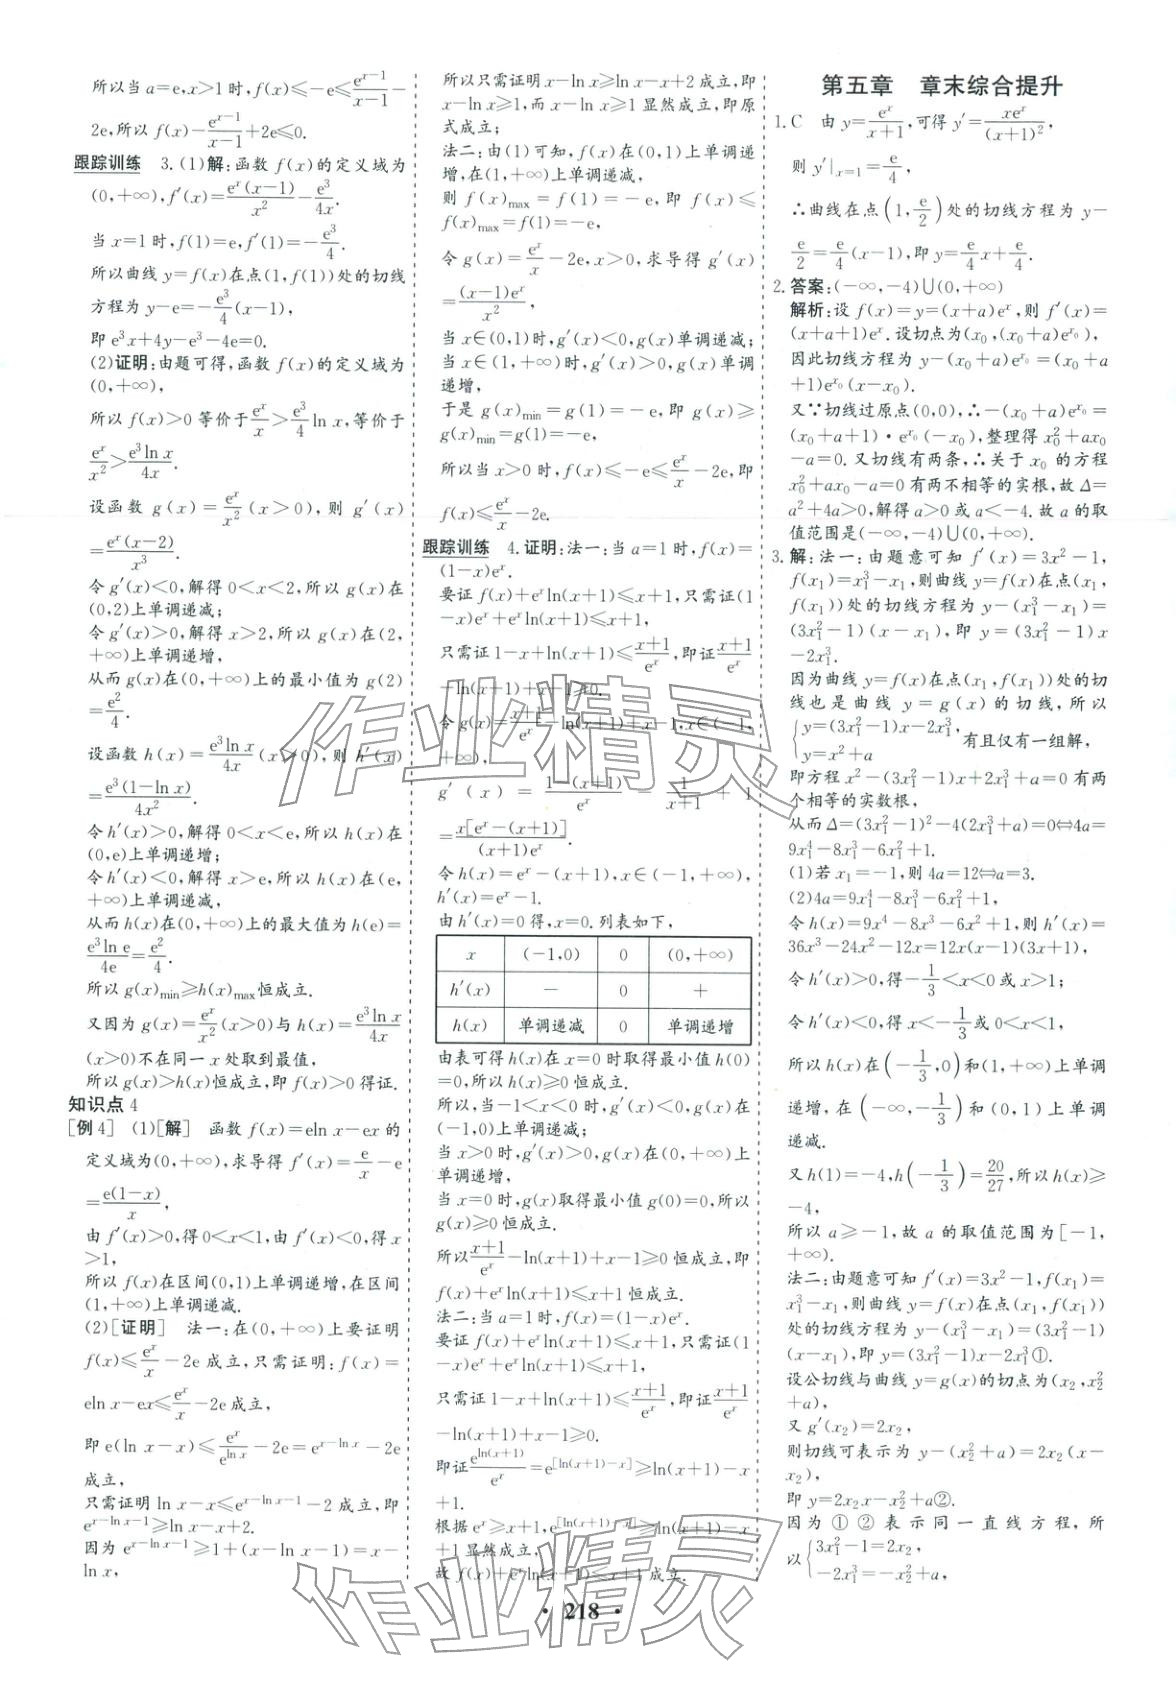 所以当 a=e,x>1 时,f(x)≤-e≤e^{x-1}/(x-1)-
2e,所以 f(x)-e^{x-1}/(x-1)+2e≤0.
跟踪训练 3.(1)解:函数 f(x)的定义域为
(0,+∞),f′(x)=e^x(x-1)/x²-e³/(4x).
当 x=1 时,f(1)=e,f′(1)=-e³/4.
所以曲线 y=f(x)在点(1,f(1))处的切线
方程为 y-e=-e³/4(x-1),
即 e³x+4y-e³-4e=0.
(2)证明:由题可得,函数 f(x)的定义域为
(0,+∞),
所以 f(x)>0 等价于 e^x/x>e³/4 ln x,等价于
e^x/x²>e³ln x/(4x).
设函数 g(x)=e^x/x²(x>0),则 g′(x)
=e^x(x-2)/x³.
令 g′(x)<0,解得 0<x<2,所以 g(x)在
(0,2)上单调递减;
令 g′(x)>0,解得 x>2,所以 g(x)在(2,
+∞)上单调递增,
从而 g(x)在(0,+∞)上的最小值为 g(2)=
e²/4.
设函数 h(x)=e³ln x/(4x)(x>0),则 h′(x)=
e³(1-ln x)/(4x²).
令 h′(x)>0,解得 0<x<e,所以 h(x)在
(0,e)上单调递增;
令 h′(x)<0,解得 x>e,所以 h(x)在(e,
+∞)上单调递减,
从而 h(x)在(0,+∞)上的最大值为 h(e)=
e³ln e/(4e)=e²/4.
所以 g(x)min≥h(x)max恒成立.
又因为 g(x)=e^x/x²(x>0)与 h(x)=e³ln x/(4x)
(x>0)不在同一 x 处取到最值,
所以 g(x)>h(x)恒成立,即 f(x)>0 得证.
知识点 4
[例 4] (1)[解] 函数 f(x)=eln x-ex 的
定义域为(0,+∞),求导得 f′(x)=e/x-e
=e(1-x)/x,
由 f′(x)>0,得 0<x<1,由 f′(x)<0,得 x
>1,
所以 f(x)在区间(0,1)上单调递增,在区间
(1,+∞)上单调递减.
(2)[证明] 法一:在(0,+∞)上要证明
f(x)≤e^x/x-2e 成立,只需证明:f(x)=
eln x-ex≤e^x/x-2e 成立,
即 e(ln x-x)≤e^x/e^{ln x}-2e=e^{x-ln x}-2e
成立,
只需证明 ln x-x≤e^{x-ln x-1}-2 成立,即
e^{x-ln x-1}≥ln x-x+2.
因为 e^{x-ln x-1}≥1+(x-ln x-1)=x-
ln x,
所以只需证明 x-ln x≥ln x-x+2 成立,即
x-ln x≥1,而 x-ln x≥1 显然成立,即原
式成立;
法二:由(1)可知,f(x)在(0,1)上单调递
增,在(1,+∞)上单调递减,
则 f(x)max=f(1)=-e,即 f(x)≤
f(x)max=f(1)=-e,
令 g(x)=e^x/x-2e,x>0,求导得 g′(x)
=(x-1)e^x/x²,
当 x∈(0,1)时,g′(x)<0,g(x)单调递减;
当 x∈(1,+∞)时,g′(x)>0,g(x)单调
递增,
于是 g(x)min=g(1)=-e,即 g(x)≥
g(x)min=g(1)=-e,
所以当 x>0 时,f(x)≤-e≤e^x/x-2e,即
f(x)≤e^x/x-2e.
跟踪训练 4.证明:法一:当 a=1 时,f(x)=
(1-x)e^x.
要证 f(x)+e^xln(x+1)≤x+1,只需证(1
-x)e^x+e^xln(x+1)≤x+1,
只需证 1-x+ln(x+1)≤(x+1)/e^x,即证(x+1)/e^x
-ln(x+1)+x-1≥0.
令 g(x)=(x+1)/e^x-ln(x+1)+x-1,x∈(-1,
+∞),
g′(x)=(1-(x+1))/e^x-1/(x+1)+1
=x[e^x-(x+1)]/((x+1)e^x).
令 h(x)=e^x-(x+1),x∈(-1,+∞),
h′(x)=e^x-1.
由 h′(x)=0 得,x=0.列表如下,
x (-1,0) 0 (0,+∞)
h′(x) - 0 +
h(x) 单调递减 0 单调递增
由表可得 h(x)在 x=0 时取得最小值 h(0)
=0,所以 h(x)≥0 恒成立.
所以,当-1<x<0 时,g′(x)<0,g(x)在
(-1,0)上单调递减;
当 x>0 时,g′(x)>0,g(x)在(0,+∞)上
单调递增,
当 x=0 时,g(x)取得最小值 g(0)=0,所以
g(x)≥0 恒成立.
所以(x+1)/e^x-ln(x+1)+x-1≥0 恒成立,即
f(x)+e^xln(x+1)≤x+1 恒成立.
法二:当 a=1 时,f(x)=(1-x)e^x.
要证 f(x)+e^xln(x+1)≤x+1,只需证(1
-x)e^x+e^xln(x+1)≤x+1,
只需证 1-x+ln(x+1)≤(x+1)/e^x,即证(x+1)/e^x
-ln(x+1)+x-1≥0.
即证e^{ln(x+1)}/e^x=e^{[ln(x+1)-x]}≥ln(x+1)-x
+1.
根据 e^x≥x+1,e^{[ln(x+1)-x]}≥ln(x+1)-x
+1 显然成立,
故 f(x)+e^xln(x+1)≤x+1 成立.
第五章 章末综合提升
1.C 由 y=e^x/(x+1),可得 y′=xe^x/(x+1)²,
则 y′|x=1=e/4,
∴曲线在点(1,e/2)处的切线方程为 y-
e/2=e/4(x-1),即 y=e/4x+e/4.
2.答案:(-∞,-4)∪(0,+∞)
解析:设 f(x)=y=(x+a)e^x,则 f′(x)=
(x+a+1)e^x.设切点为(x₀,(x₀+a)e^{x₀}),
因此切线方程为 y-(x₀+a)e^{x₀}=(x₀+a
+1)e^{x₀}(x-x₀).
又∵切线过原点(0,0),∴-(x₀+a)e^{x₀}=
(x₀+a+1)•e^{x₀}(-x₀),整理得 x₀²+ax₀
-a=0.又切线有两条,∴关于 x₀ 的方程
x₀²+ax₀-a=0 有两不相等的实根,故 Δ=
a²+4a>0,解得 a>0 或 a<-4.故 a 的取
值范围是(-∞,-4)∪(0,+∞).
3.解:法一:由题意可知 f′(x)=3x²-1,
f(x₁)=x₁³-x₁,则曲线 y=f(x)在点(x₁,
f(x₁))处的切线方程为 y-(x₁³-x₁)=
(3x₁²-1)(x-x₁),即 y=(3x₁²-1)x
-2x₁³.
因为曲线 y=f(x)在点(x₁,f(x₁))处的切
线也是曲线 y=g(x)的切线,所以
{y=(3x₁²-1)x-2x₁³,
y=x²+a 有且仅有一组解,
即方程 x²-(3x₁²-1)x+2x₁³+a=0 有两
个相等的实数根,
从而 Δ=(3x₁²-1)²-4(2x₁³+a)=0⇔4a=
9x₁⁴-8x₁³-6x₁²+1.
(1)若 x₁=-1,则 4a=12⇔a=3.
(2)4a=9x₁⁴-8x₁³-6x₁²+1,
令 h(x)=9x⁴-8x³-6x²+1,则 h′(x)=
36x³-24x²-12x=12x(x-1)(3x+1),
令 h′(x)>0,得-1/3<x<0 或 x>1;
令 h′(x)<0,得 x<-1/3或 0<x<1,
所以 h(x)在(-1/3,0)和(1,+∞)上单调
递增,在(-∞,-1/3)和(0,1)上单调
递减.
又 h(1)=-4,h(-1/3)=20/27,所以 h(x)≥
-4,
所以 a≥-1,故 a 的取值范围为[-1,
+∞).
法二:由题意可知 f′(x)=3x²-1,f(x₁)=
x₁³-x₁,则曲线 y=f(x)在点(x₁,f(x₁))
处的切线方程为 y-(x₁³-x₁)=(3x₁²-1)
(x-x₁),即 y=(3x₁²-1)x-2x₁³①.
设公切线与曲线 y=g(x)的切点为(x₂,x₂²
+a),
又 g′(x₂)=2x₂,
则切线可表示为 y-(x₂²+a)=2x₂(x-
x₂),
即 y=2x₂x-x₂²+a②.
因为①②表示同一直线方程,所
以{3x₁²-1=2x₂,
-2x₁³=-x₂²+a,
• 218 •
作业精灵
作业精灵